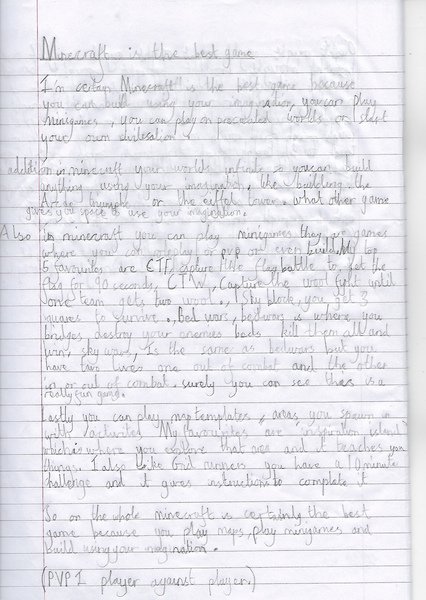 Minecraft is the best game
I'm certain Minecraft is the best game because
you can build using your imagination, you can play
minigames, you can play on precreated worlds or start
your own civilisation.
addition in minecraft your worlds infinite so you can build
anything using your imagination, like building the
Arc de triumphe or the eiffel tower. what other game
gives you space to use your imagination.
Also in minecraft you can play minigames they are games
where you can roleplay or pvp or even build. My top
5 favourites are CTF, capture the flag battle to get the
flag for 90 seconds, CTW, Capture the wool fight until
one team gets two wool., Sky block, you get 3
squares to survive., bed wars, bedwars is where you
bridges destroy your enemies beds kill them all and
win, sky wars, Is the same as bedwars but you
have two lives one out of combat and the other
in or out of combat. surely you can see this is a
really fun game.
Lastly you can play map templates, areas you spawn in
with activites My favourites are inspiration island
which is where you explore that area and it teaches you
things. I also like grid runners you have a 10 minute
challenge and it gives instructions to complete it
So on the whole minecraft is certainly the best
game because you play maps, play minigames and
build using your imagination.
(PVP 1 player against player.)